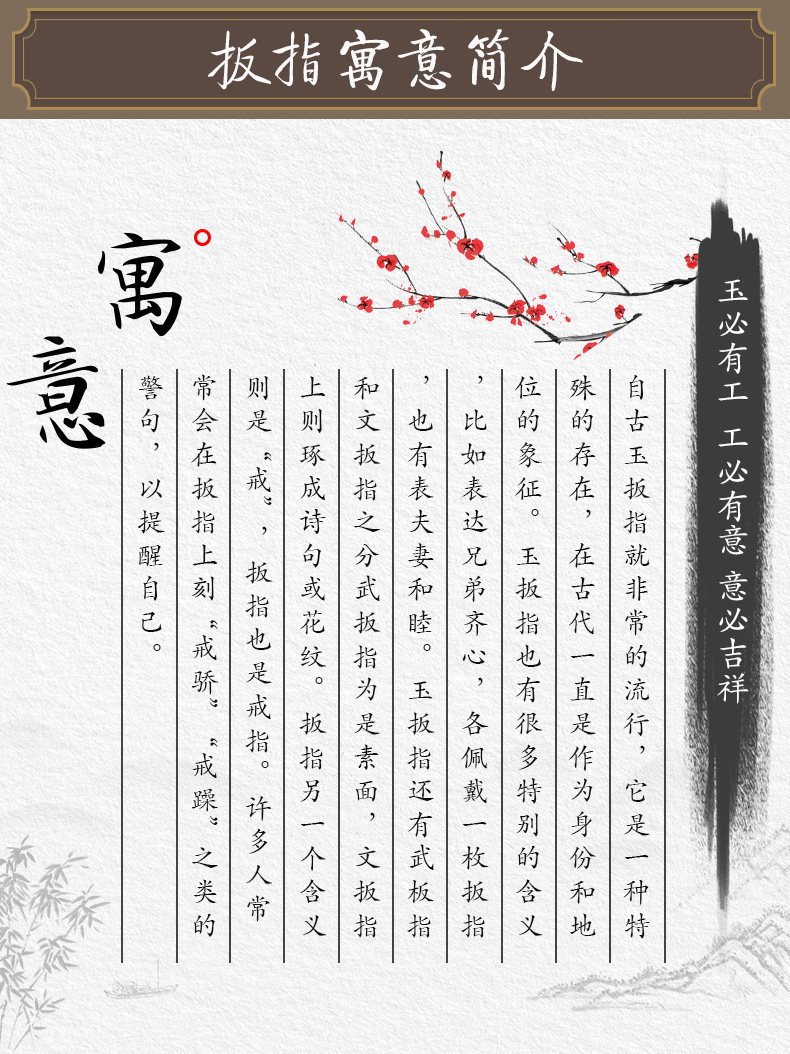 扳指寓意简介
寓意
玉必有工 工必有意 意必吉祥
自古玉扳指就非常的流行，它是一种特
殊的存在，在古代一直是作为身份和地
位的象征。玉扳指也有很多特别的含义
，比如表达兄弟齐心，各佩戴一枚扳指
，也有表夫妻和睦。玉扳指还有武板指
和文扳指之分武扳指为是素面，文扳指
上则琢成诗句或花纹。扳指另一个含义
则是“戒”，扳指也是戒指。许多人常
常会在扳指上刻“戒骄”“戒躁”之类的
警句，以提醒自己。